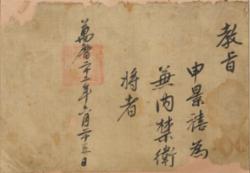 教旨
申景禧爲
兼內禁衛
將者
萬曆二十二年六月二十日